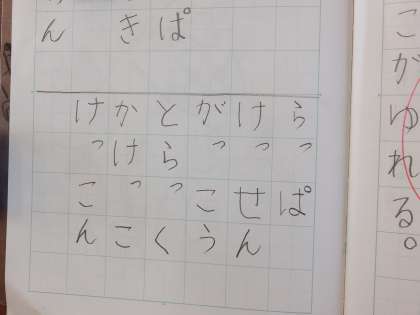 こがゆれる。
ぱ
き
ん
らっぱ
けっせん
がっこう
とらっく
かけっこ
けっこん